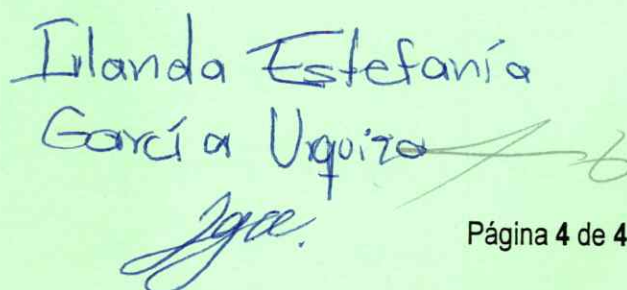 Irlanda Estefanía
García Urquiza
Página 4 de 4